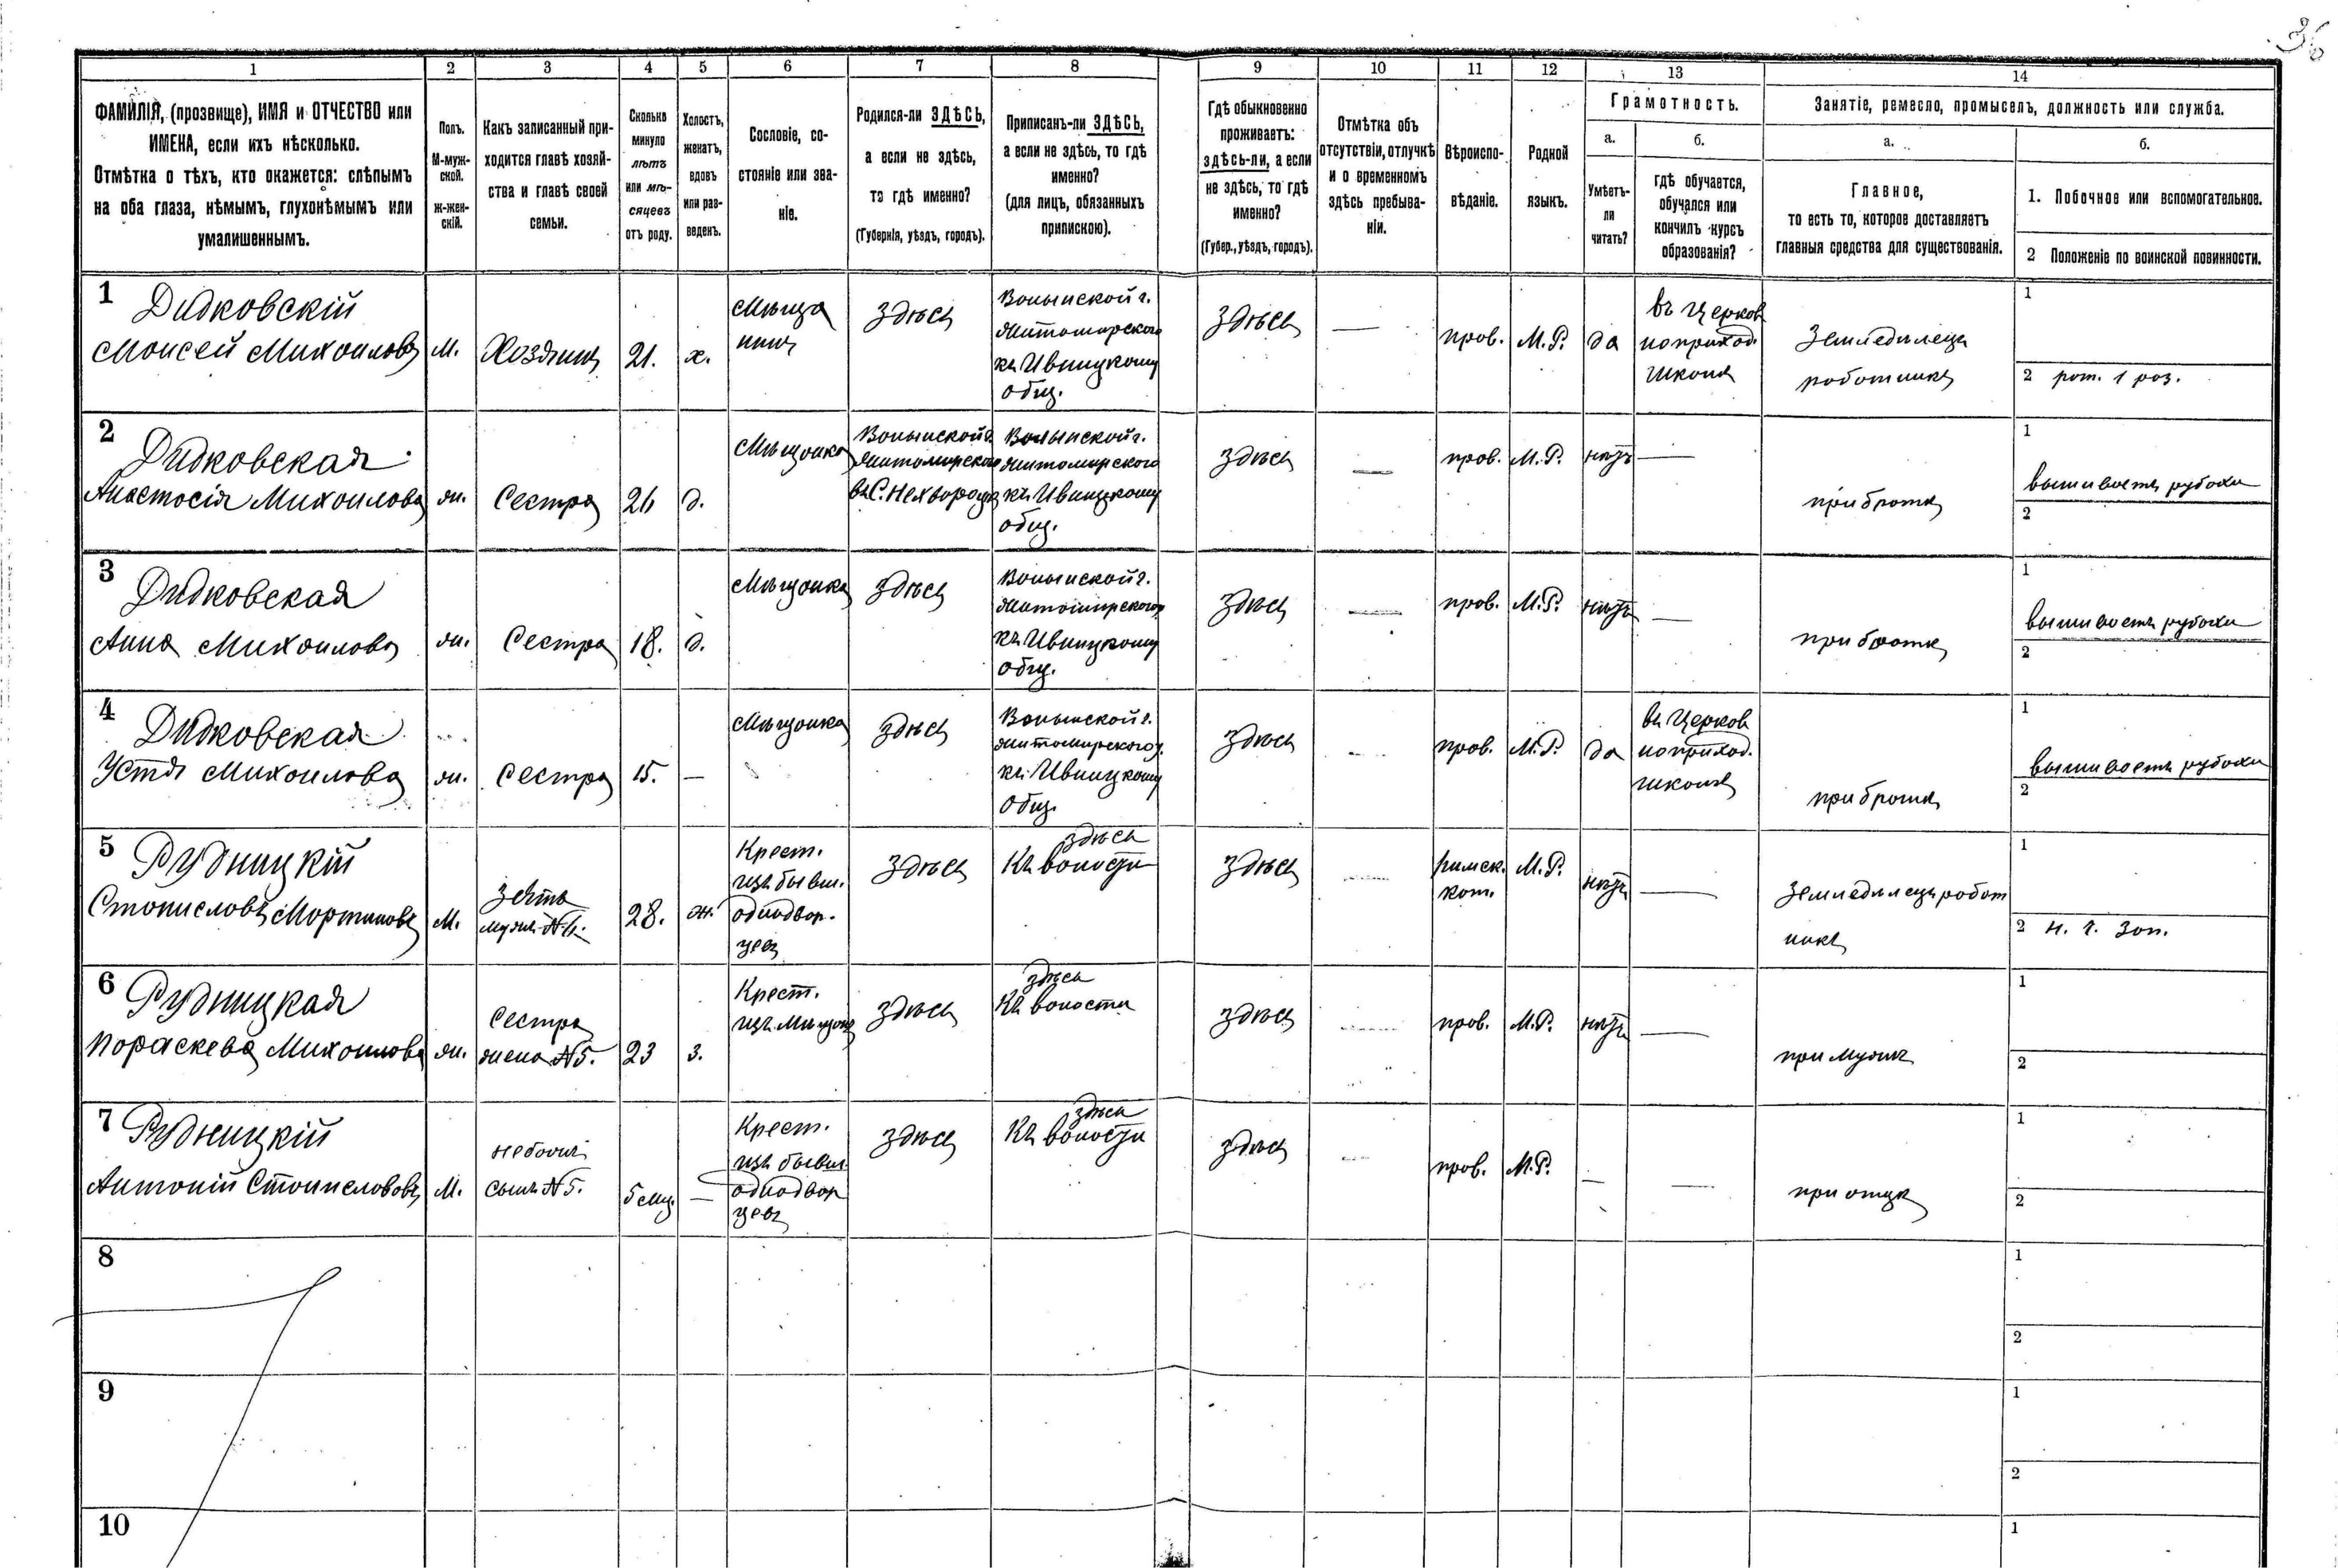 36
1 2 3 4 5 6 7 8 9 10 11 12 13 14
ФАМИЛІЯ, (прозвище), ИМЯ и ОТЧЕСТВО или
ИМЕНА, если ихъ нѣсколько.
Отмѣтка о тѣхъ, кто окажется: слѣпымъ
на оба глаза, нѣмымъ, глухонѣмымъ или
умалишеннымъ.
Полъ.
М-муж-
ской.
Ж-жен-
скій.
Какъ записанный при-
ходится главѣ хозяй-
ства и главѣ своей
семьи.
Сколько
минуло
лѣтъ
или мѣ-
сяцевъ
отъ роду.
Холостъ,
женатъ,
вдовъ
или раз-
веденъ.
Сословіе, со-
стояніе или зва-
ніе.
Родился-ли ЗДѢСЬ,
а если не здѣсь,
то гдѣ именно?
(Губернія, уѣздъ, городъ).
Приписанъ-ли ЗДѢСЬ,
а если не здѣсь, то гдѣ
именно?
(для лицъ, обязанныхъ
припискою).
Гдѣ обыкновенно
проживаетъ:
здѣсь-ли, а если
не здѣсь, то гдѣ
именно?
(Губер., уѣздъ, городъ).
Отмѣтка объ
отсутствіи, отлучкѣ
и о временномъ
здѣсь пребыва-
ніи.
Вѣроиспо-
вѣданіе.
Родной
языкъ.
Грамотность.
а.
Умѣетъ-
ли
читать?
б.
гдѣ обучается,
обучался или
кончилъ курсъ
образованія?
Занятіе, ремесло, промыселъ, должность или служба.
а.
Главное,
то есть то, которое доставляетъ
главныя средства для существованія.
б.
1. Побочное или вспомогательное.
2 Положеніе по воинской повинности.
1
Дидковскій
Моисей Михаиловъ
М.
Хозяинъ
21.
х.
Мѣща
нинъ
здѣсь
Волынской г.
Житомирского
къ Ивницкому
общ.
здѣсь
—
прав.
М.Р.
да
въ Церков
ноприход.
школѣ
Земледѣлецъ
работникъ
1
2 рат. 1 раз.
2
Дидковская
Анастасія Михаилова
ж.
Сестра
26
д.
Мѣщанка
Волынской г.
Житомирского
въ С. Нехворощѣ
Волынской г.
Житомирского
къ Ивницкому
общ.
здѣсь
—
прав.
М.Р.
нѣтъ
—
при братѣ
1
вышиваетъ рубахи
2
3
Дидковская
Анна Михаилова
ж.
Сестра
18.
д.
Мѣщанка
здѣсь
Волынской г.
Житомирского
къ Ивницкому
общ.
здѣсь
—
прав.
М.Р.
нѣтъ
—
при братѣ
1
вышиваетъ рубахи
2
4
Дидковская
Устя Михаилова
ж.
Сестра
15.
—
Мѣщанка
здѣсь
Волынской г.
Житомирского у.
къ Ивницкому
общ.
здѣсь
—
прав.
М.Р.
да
въ Церков
ноприход.
школѣ
при братѣ
1
вышиваетъ рубахи
2
5
Рудницкій
Станиславъ Мартиновъ
М.
зять
мужъ №6.
28.
ж.
Крест.
изъ бывш.
однодвор-
цевъ
здѣсь
здѣсь
Къ волости
здѣсь
—
римск.
кат.
М.Р.
нѣтъ
—
Земледѣлецъ работ
никъ
1
2 н. г. зап.
6
Рудницкая
Параскева Михаилова
ж.
Сестра
жена №5.
23
з.
Крест.
изъ мѣщанъ
здѣсь
здѣсь
Къ волости
здѣсь
—
прав.
М.Р.
нѣтъ
—
при мужѣ
1
2
7
Рудницкій
Антоній Станиславовъ
М.
небожъ
сынъ №5.
5 мц.
—
Крест.
изъ бывш.
однодвор
цевъ
здѣсь
здѣсь
Къ волости
здѣсь
—
прав.
М.Р.
—
—
при отцѣ
1
2
8
1
2
9
1
2
10
1